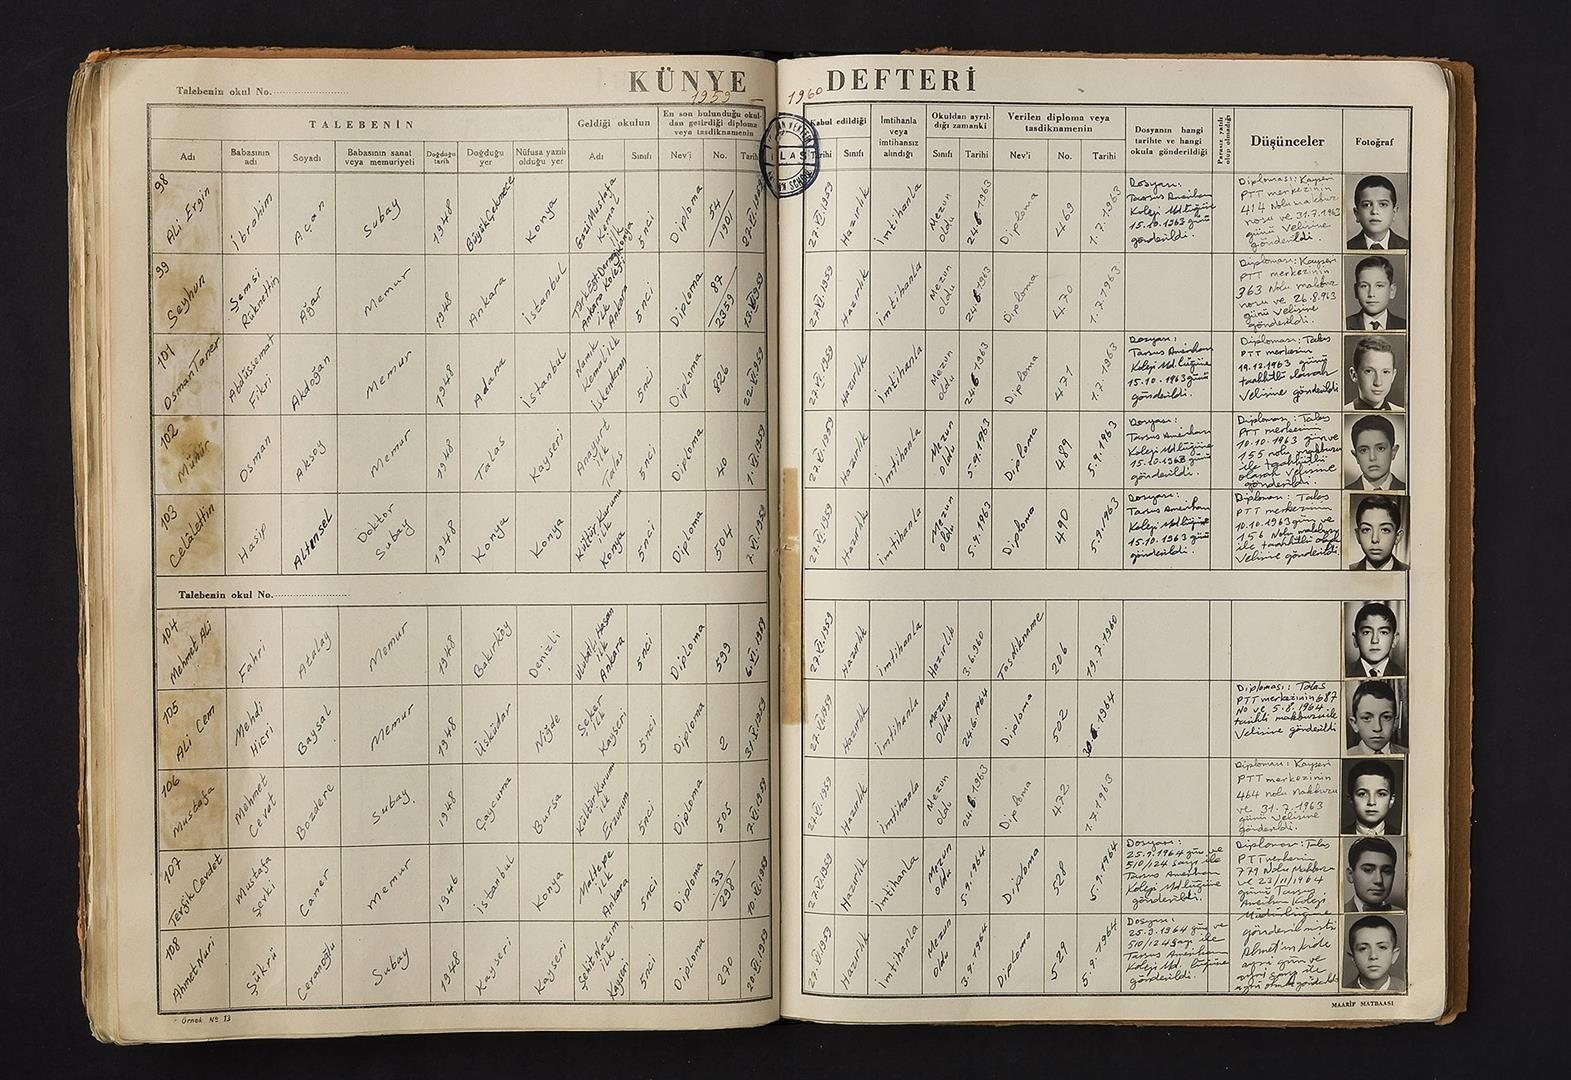 KÜNYE DEFTERİ
1959 - 1960
Talebenin okul No.
TALEBENİN
Geldiği okulun
En son bulunduğu okuldan getirdiği diploma veya tasdiknamenin
Kabul edildiği
İmtihanla veya imtihansız alındığı
Okuldan ayrıldığı zamanki
Verilen diploma veya tasdiknamenin
Dosyanın hangi tarihte ve hangi okula gönderildiği
Parasız yatılı olup olmadığı
Düşünceler
Fotoğraf
Adı
Babasının adı
Soyadı
Babasının sanat veya memuriyeti
Doğduğu tarih
Doğduğu yer
Nüfusa yazılı olduğu yer
Adı
Sınıfı
Nev'i
No.
Tarihi
Tarihi
Sınıfı
Sınıfı
Tarihi
Nev'i
No.
Tarihi
TALAS
98 Ali Ergin
İbrahim
Açan
Subay
1948
Büyük Çekmece
Konya
Gazi Mustafa Kemal İlk Konya
5nci
Diploma
54/1901
27.VI.1959
Hazırlık
İmtihanla
Mezun oldu
24.6.1963
Diploma
469
1.7.1963
Dosyası: Tarsus Amerikan Koleji Md.lüğüne 15.10.1963 günü gönderildi.
Diploması: Kayseri PTT merkezinin 414 Nolu makbuz nosu ve 31.7.1963 günü Velisine gönderildi.
99 Seyhun
Şemsi Rüknettin
Ağar
Memur
1948
Ankara
İstanbul
5nci
Diploma
87/2359
13.VI.1959
27.VI.1959
Hazırlık
İmtihanla
Mezun oldu
24.6.1963
Diploma
470
1.7.1963
Diploması: Kayseri PTT merkezinin 363 Nolu makbuz nosu ve 26.8.963 günü Velisine gönderildi.
101 Osman Taner
Abdüssemat Fikri
Akdoğan
Memur
1948
Adana
İstanbul
Namık Kemal İlk İskenderun
5nci
Diploma
826
22.VI.1959
27.VI.1959
Hazırlık
İmtihanla
Mezun oldu
24.6.1963
Diploma
471
1.7.1963
Dosyası: Tarsus Amerikan Koleji Md.lüğüne 15.10.1963 günü gönderildi.
Diploması: Talas PTT merkezinin 19.12.1963 günü taahhütlü olarak Velisine gönderildi
102 Münür
Osman
Aksoy
Memur
1948
Talas
Kayseri
Anayurt İlk Talas
5nci
Diploma
40
1.VI.1959
27.VI.1959
Hazırlık
İmtihanla
Mezun oldu
5.9.1963
Diploma
489
5.9.1963
Dosyası: Tarsus Amerikan Koleji Md.lüğüne 15.10.1963 günü gönderildi.
Diploması: Talas PTT merkezinin 10.10.1963 gün ve 155 nolu makbuzu ile taahhütlü olarak Velisine gönderildi.
103 Celâlettin
Hasip
Altensel
Doktor Subay
1948
Konya
Konya
Kültür Kurumu İlk Konya
5nci
Diploma
504
27.VI.1959
Hazırlık
İmtihanla
Mezun oldu
5.9.1963
Diploma
490
5.9.1963
Dosyası: Tarsus Amerikan Koleji Md.lüğüne 15.10.1963 günü gönderildi.
Diploması: Talas PTT merkezinin 10.10.1963 gün ve 156 Nolu makbuzu ile taahhütlü olarak Velisine gönderildi.
Talebenin okul No.
104 Mehmet Ali
Fahri
Atalay
Memur
1948
Bakırköy
Denizli
Ulubatlı Hasan İlk Ankara
5nci
Diploma
599
6.VI.1959
27.VI.1959
Hazırlık
İmtihanla
Hazırlık
3.6.960
Tasdikname
206
19.7.1960
105 Ali Cem
Mehdi Hicri
Baysal
Memur
1948
Üsküdar
Niğde
Sezer İlk Kayseri
5nci
Diploma
2
27.VI.1959
Hazırlık
İmtihanla
Mezun oldu
24.6.1964
Diploma
502
1964
Diploması: Talas PTT merkezinin 687 No ve 5.8.1964 tarihli makbuzu ile Velisine gönderildi
106 Mustafa
Mehmet Cevat
Bozdere
Subay
1948
Çaycuma
Bursa
Kültür Kurumu İlk Erzurum
5nci
Diploma
505
27.VI.1959
Hazırlık
İmtihanla
Mezun oldu
24.6.1963
Diploma
472
1.7.1963
Diploması: Kayseri PTT merkezinin 464 nolu makbuzu ve 31.7.1963 günü Velisine gönderildi.
107 Tevfik Cevdet
Mustafa Şevki
Caner
Memur
1946
İstanbul
Konya
Maltepe İlk Ankara
5nci
Diploma
33/298
10.VI.1959
27.VI.1959
Hazırlık
İmtihanla
Mezun oldu
5.9.1964
Diploma
528
5.9.1964
Dosyası: 25.9.1964 gün ve 510/124 sayı ile Tarsus Amerikan Koleji Md.lüğüne gönderildi.
Diploması: Talas PTT merkezinin 779 Nolu Makbuzu ve 23/11/1964 günü Tarsus Amerikan Koleji Müdürlüğüne gönderilmişti
108 Ahmet Nuri
Şükrü
Ceranoğlu
Subay
1948
Kayseri
Kayseri
Şehit Nazım İlk Kayseri
5nci
Diploma
270
20.VI.1959
27.VI.1959
Hazırlık
İmtihanla
Mezun oldu
3.9.1964
Diploma
529
5.9.1964
Dosyası: 25.9.1964 gün ve 510/124 sayı ile Tarsus Amerikan Koleji Md.lüğüne gönderildi.
Ahmet'inkide aynı gün ve aynı sayı ile
Örnek No 13
MAARİF MATBAASI